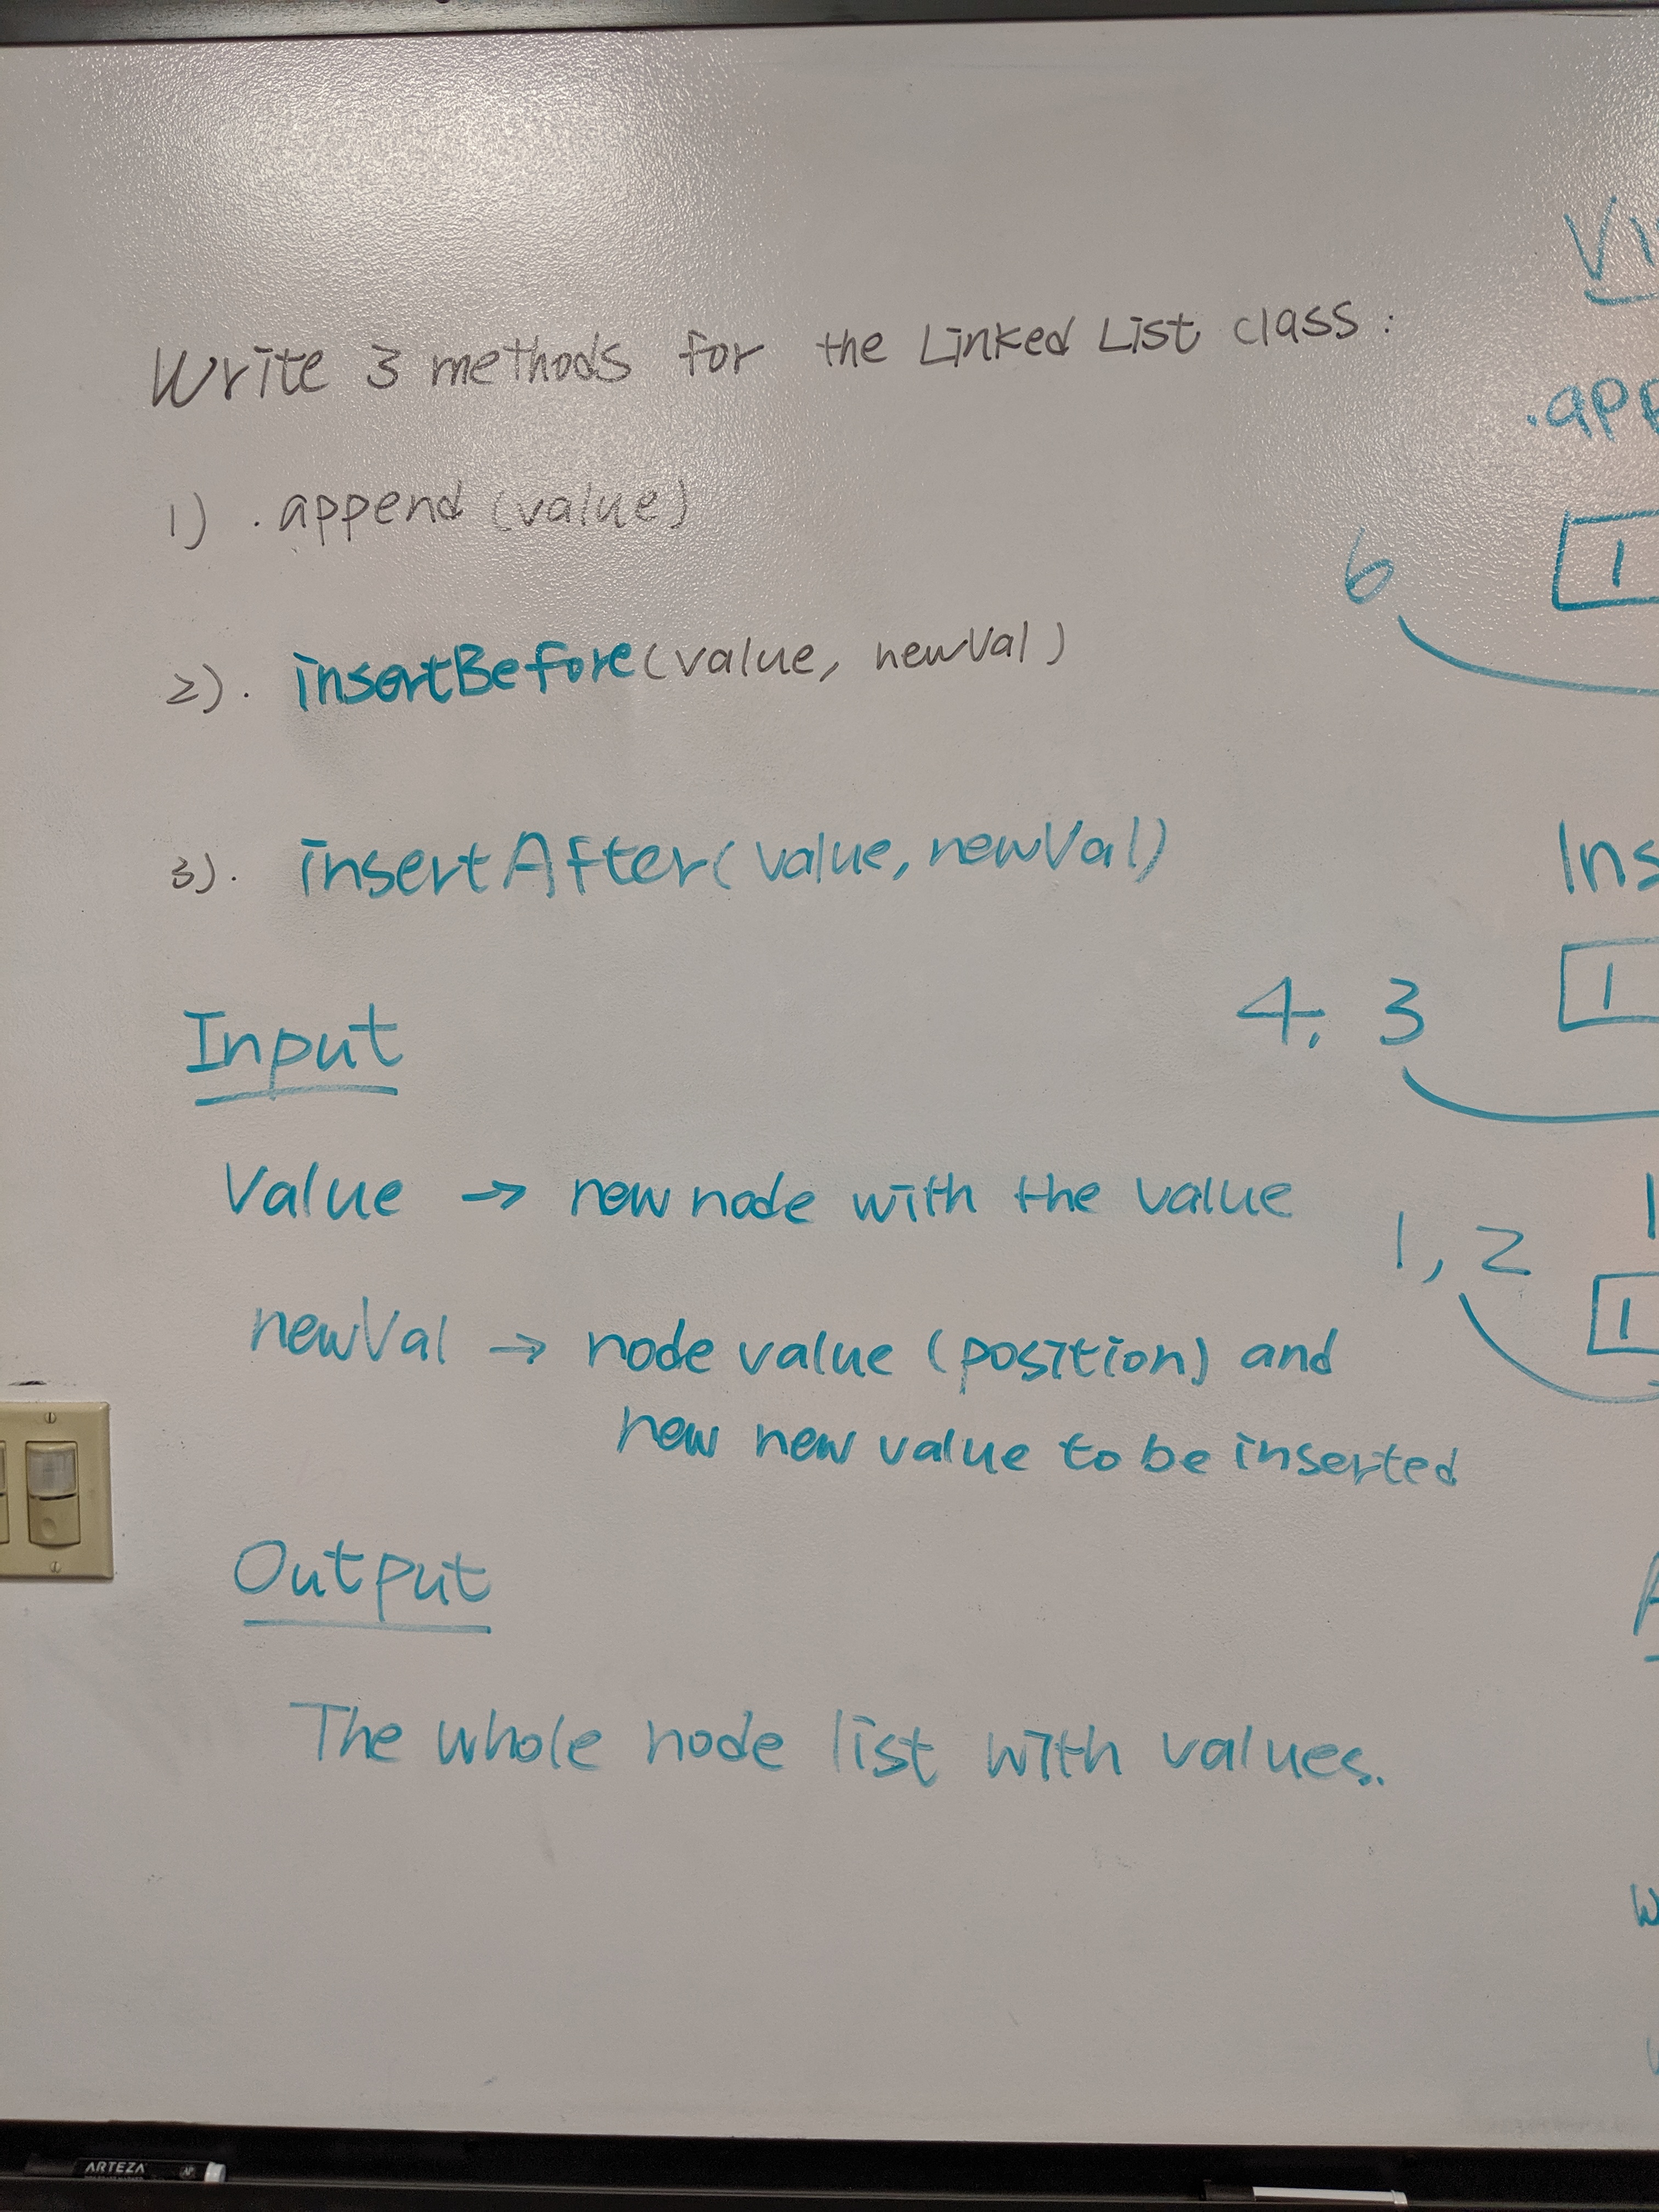 Write 3 methods for the Linked List class :
1) . append (value)
2) . insertBefore (value, newVal)
3) . insertAfter (value, newVal)
Input
Value → new node with the value
newVal → node value (position) and
new new value to be inserted
Output
The whole node list with values.
.app
6
1
Ins
4, 3
1
1, 2
1
ARTEZA